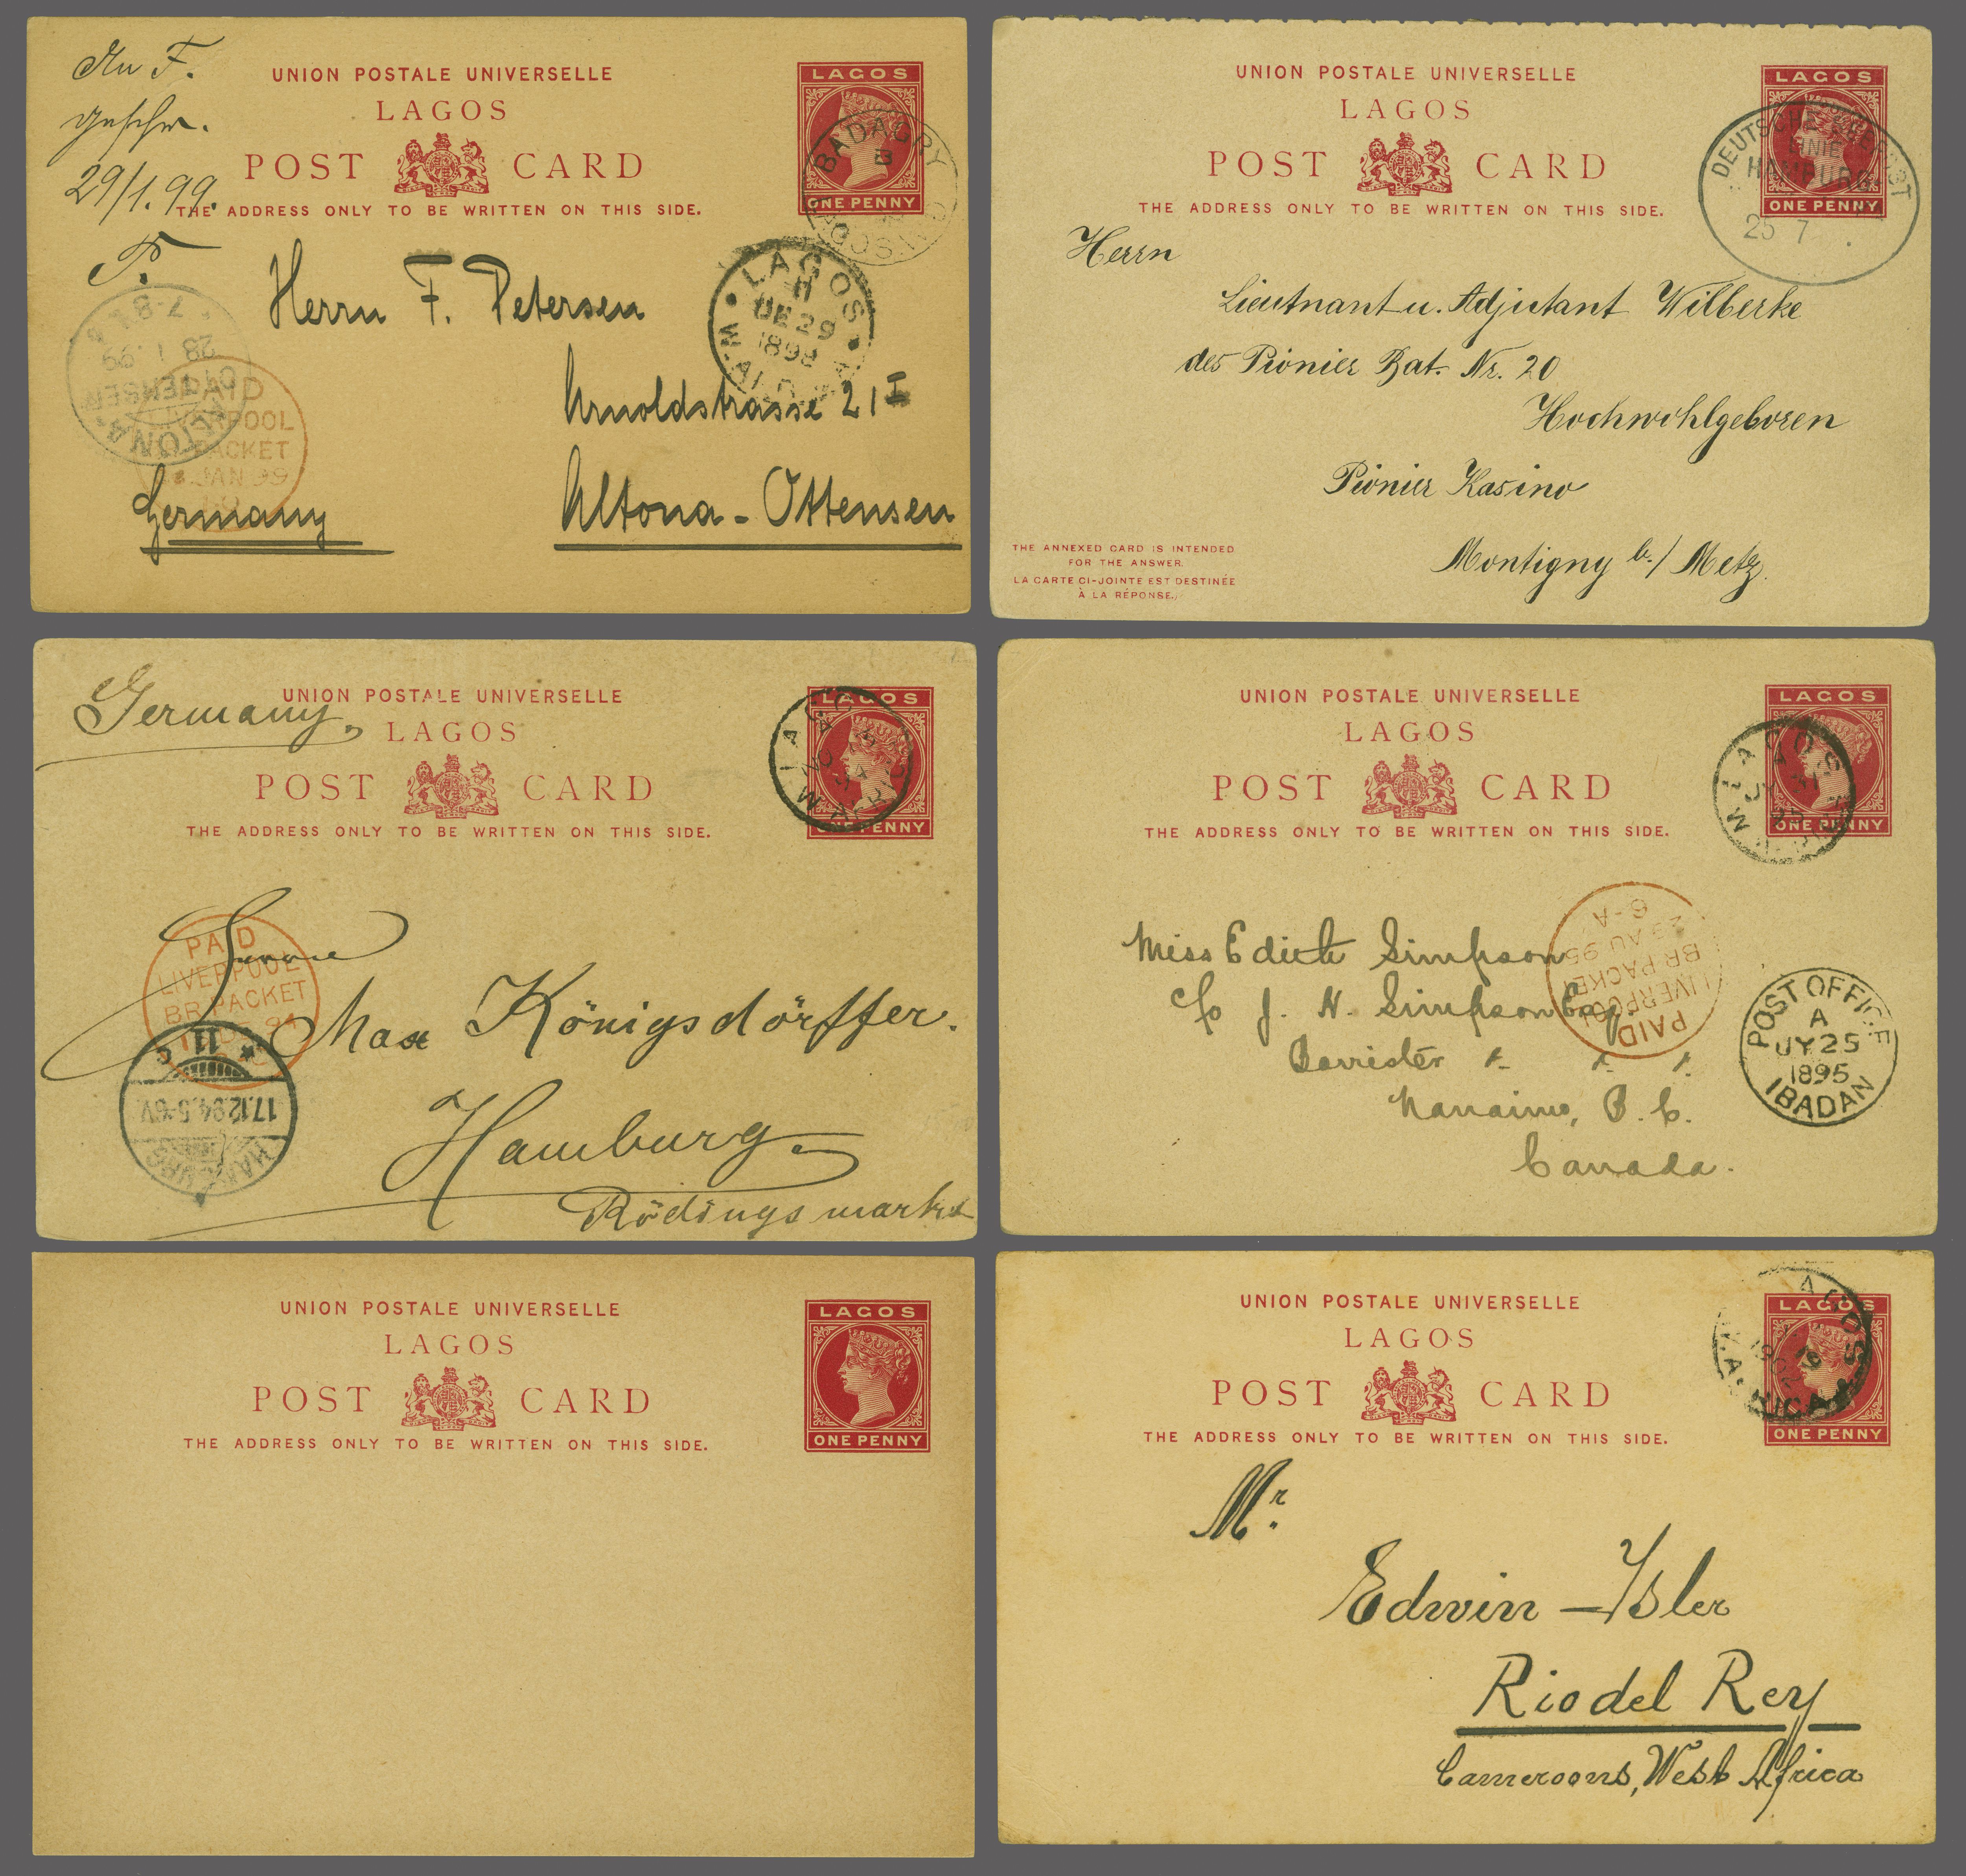 An F.
geschr.
29/1.99.
P.
UNION POSTALE UNIVERSELLE
LAGOS
POST CARD
THE ADDRESS ONLY TO BE WRITTEN ON THIS SIDE.
LAGOS
ONE PENNY
BADAGRY
B
LAGOS
H
DE 29
1898
Herrn F. Petersen
Arnoldstrasse 21 I
Altona-Ottensen
Germany
28 1 99
PAID
LIVERPOOL
PACKET
JAN 99
UNION POSTALE UNIVERSELLE
LAGOS
POST CARD
THE ADDRESS ONLY TO BE WRITTEN ON THIS SIDE.
LAGOS
ONE PENNY
DEUTSCHE SEEPOST
LINIE
HAMBURG
25 7
Herrn
Lieutnant u. Adjutant Wilberke
des Pionier Bat. Nr. 20
Hochwohlgeboren
Pionier Kasino
Montigny b./ Metz.
THE ANNEXED CARD IS INTENDED
FOR THE ANSWER.
LA CARTE CI-JOINTE EST DESTINÉE
À LA RÉPONSE.
Germany,
UNION POSTALE UNIVERSELLE
LAGOS
POST CARD
THE ADDRESS ONLY TO BE WRITTEN ON THIS SIDE.
LAGOS
ONE PENNY
LAGOS
PAID
LIVERPOOL
BR PACKET
94
Max Königsdörffer.
Hamburg
Rödingsmarkt
11
17.12.94.5-6V.
HAMBURG
UNION POSTALE UNIVERSELLE
LAGOS
POST CARD
THE ADDRESS ONLY TO BE WRITTEN ON THIS SIDE.
LAGOS
ONE PENNY
LAGOS
JY 31
95
Miss Edith Simpson
c/o J. H. Simpson Esq.
Barrister
Nanaimo, B.C.
Canada.
PAID
LIVERPOOL
BR PACKET
23 AU 95
6-A
POST OFFICE
A
JY 25
1895
IBADAN
UNION POSTALE UNIVERSELLE
LAGOS
POST CARD
THE ADDRESS ONLY TO BE WRITTEN ON THIS SIDE.
LAGOS
ONE PENNY
UNION POSTALE UNIVERSELLE
LAGOS
POST CARD
THE ADDRESS ONLY TO BE WRITTEN ON THIS SIDE.
LAGOS
ONE PENNY
LAGOS
1902
Mr.
Edwin Isler
Rio del Rey
Cameroons, West Africa